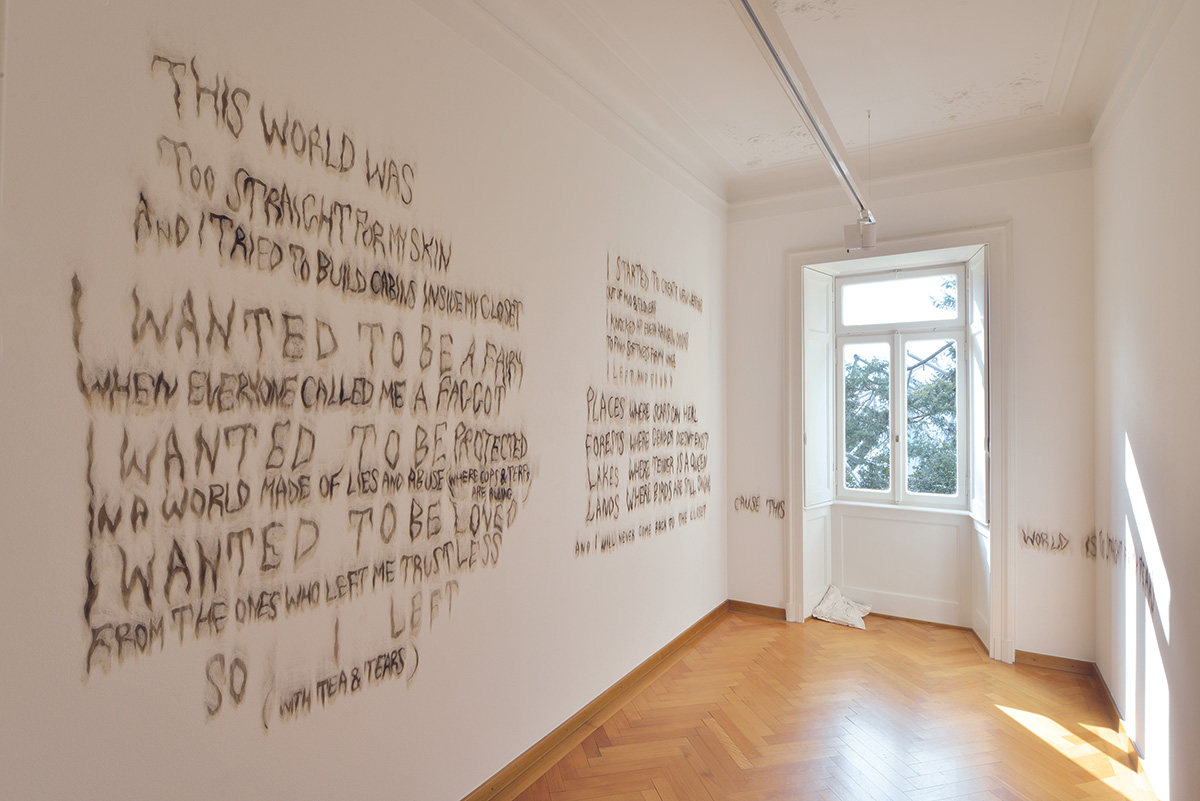 THIS WORLD WAS
TOO STRAIGHT FOR MY SKIN
AND I TRIED TO BUILD CABINS INSIDE MY CLOSET
I WANTED TO BE A FAIRY
WHEN EVERYONE CALLED ME A FAGGOT
I WANTED TO BE PROTECTED
IN A WORLD MADE OF LIES AND ABUSE (WHERE COPS & TERFS
ARE RULING)
I WANTED TO BE LOVED
FROM THE ONES WHO LEFT ME TRUSTLESS
SO I LEFT
(WITH TEA & TEARS)
I STARTED TO CREATE NEW
OUT OF MUD & FLOWERS
I KNOCKED AT EVERY
TO FIND
I LEFT AND
PLACES WHERE SCARS CAN HEAL
FORESTS WHERE GENDER DOESN'T EXIST
LAKES WHERE TENDER IS A QUEEN
LANDS WHERE BIRDS ARE STILL
AND I WILL NEVER COME BACK TO THE CLOSET
CAUSE THIS
WORLD IS